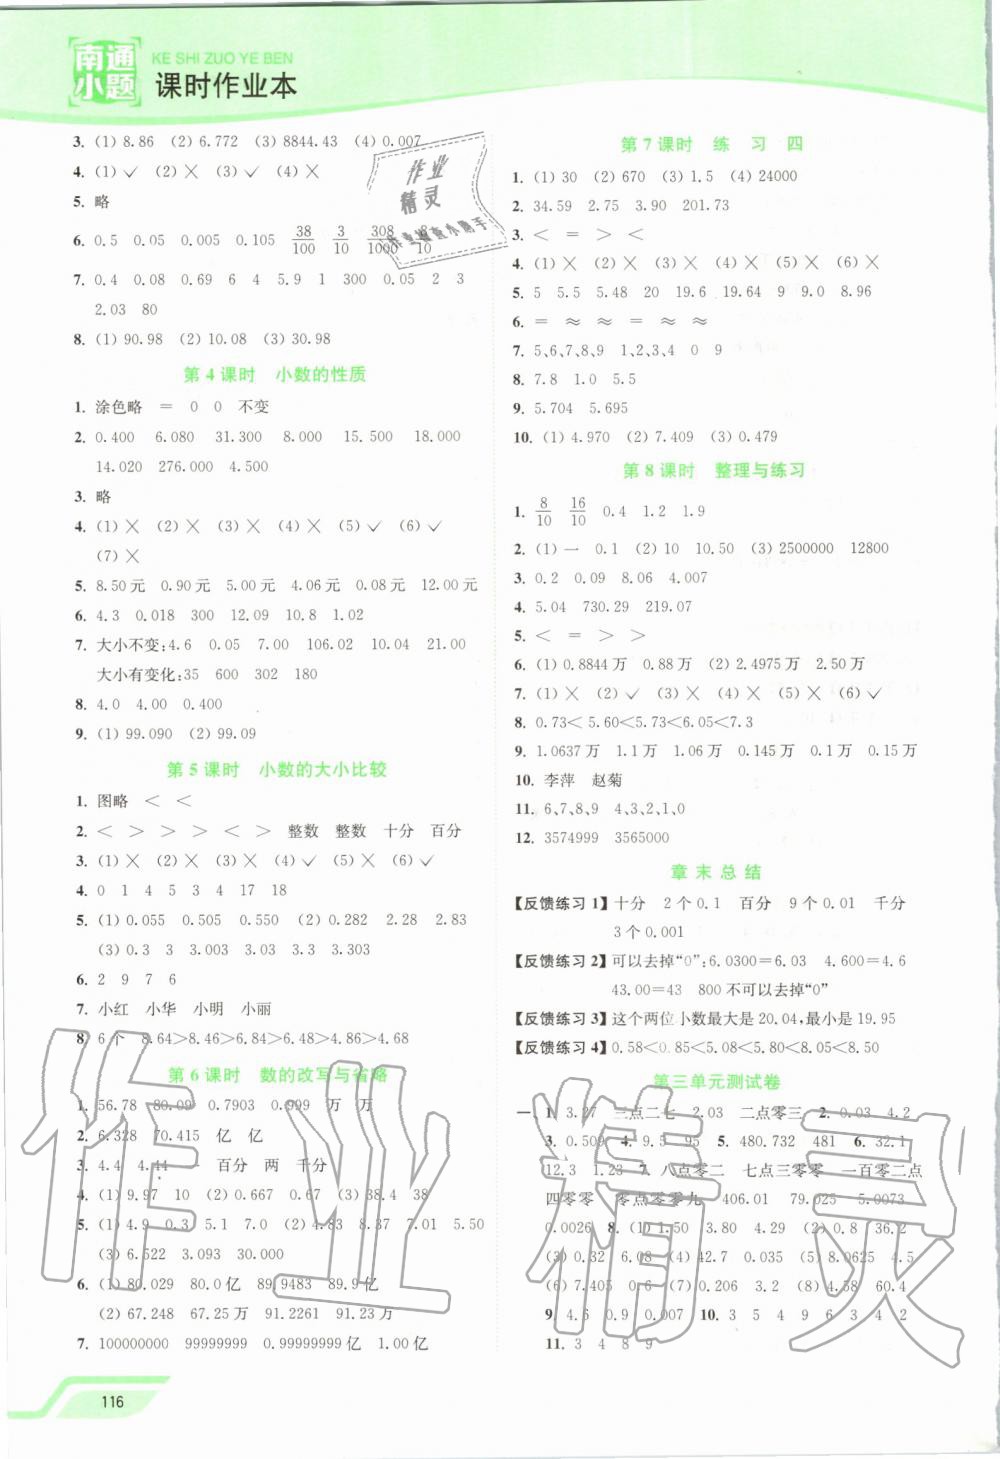 南通
小题
KE SHI ZUO YE BEN
课时作业本
3. (1) 8.86 (2) 6.772 (3) 8844.43 (4) 0.007
4. (1) ✓ (2) × (3) ✓ (4) ×
5. 略
6. 0.5 0.05 0.005 0.105 38/100 3/10 308/1000 /10
7. 0.4 0.08 0.69 6 4 5.9 1 300 0.05 2 3
2.03 80
8. (1) 90.98 (2) 10.08 (3) 30.98
第 4 课时 小数的性质
1. 涂色略 = 0 0 不变
2. 0.400 6.080 31.300 8.000 15.500 18.000
14.020 276.000 4.500
3. 略
4. (1) × (2) × (3) × (4) × (5) ✓ (6) ✓
(7) ×
5. 8.50 元 0.90 元 5.00 元 4.06 元 0.08 元 12.00 元
6. 4.3 0.018 300 12.09 10.8 1.02
7. 大小不变:4.6 0.05 7.00 106.02 10.04 21.00
大小有变化:35 600 302 180
8. 4.0 4.00 0.400
9. (1) 99.090 (2) 99.09
第 5 课时 小数的大小比较
1. 图略 < <
2. < > > > < > 整数 整数 十分 百分
3. (1) × (2) × (3) × (4) ✓ (5) × (6) ✓
4. 0 1 4 5 3 4 17 18
5. (1) 0.055 0.505 0.550 (2) 0.282 2.28 2.83
(3) 0.3 3 3.003 3.03 3.3 3.303
6. 2 9 7 6
7. 小红 小华 小明 小丽
8. 6 个 8.64>8.46>6.84>6.48>4.86>4.68
第 6 课时 数的改写与省略
1. 56.78 80.09 0.7903 0.999 万 万
2. 6.328 70.415 亿 亿
3. 4.4 4.44 一 百分 两 千分
4. (1) 9.97 10 (2) 0.667 0.67 (3) 38.4 38
5. (1) 4.9 0.3 5.1 7.0 (2) 4.83 8.37 7.01 5.50
(3) 6.522 3.093 30.000
6. (1) 80.029 80.0 亿 89.9483 89.9 亿
(2) 67.248 67.25 万 91.2261 91.23 万
7. 100000000 99999999 0.99999999 亿 1.00 亿
116
第 7 课时 练 习 四
1. (1) 30 (2) 670 (3) 1.5 (4) 24000
2. 34.59 2.75 3.90 201.73
3. < = > <
4. (1) × (2) × (3) × (4) × (5) × (6) ×
5. 5 5.5 5.48 20 19.6 19.64 9 9.0 8.96
6. = ≈ ≈ = ≈ ≈
7. 5、6、7、8、9 1、2、3、4 0 9
8. 7.8 1.0 5.5
9. 5.704 5.695
10. (1) 4.970 (2) 7.409 (3) 0.479
第 8 课时 整理与练习
1. 8/10 16/10 0.4 1.2 1.9
2. (1) 一 0.1 (2) 10 10.50 (3) 2500000 12800
3. 0.2 0.09 8.06 4.007
4. 5.04 730.29 219.07
5. < = > >
6. (1) 0.8844 万 0.88 万 (2) 2.4975 万 2.50 万
7. (1) × (2) ✓ (3) × (4) × (5) × (6) ✓
8. 0.73<5.60<5.73<6.05<7.3
9. 1.0637 万 1.1 万 1.06 万 0.145 万 0.1 万 0.15 万
10. 李萍 赵菊
11. 6、7、8、9 4、3、2、1、0
12. 3574999 3565000
章 末 总 结
【反馈练习 1】十分 2 个 0.1 百分 9 个 0.01 千分
3 个 0.001
【反馈练习 2】可以去掉“0”:6.0300=6.03 4.600=4.6
43.00=43 800 不可以去掉“0”
【反馈练习 3】这个两位小数最大是 20.04,最小是 19.95
【反馈练习 4】0.58<0.85<5.08<5.80<8.05<8.50
第三单元测试卷
一 1. 3.27 三点二七 2.03 二点零三 2. 0.03 4.2
3. 0.509 4. 9.5 95 5. 480.732 481 6. 32.1
12.3 1.23 7. 八点零二 七点三零零 一百零二点
四零零 零点零零九 406.01 79.025 5.0073
0.0026 8. (1) 1.50 3.80 4.29 (2) 0.8 36.2
(3) 0.32 6.08 (4) 42.7 0.035 (5) 8.0625 4.5
(6) 7.405 0.6 (7) 0.206 3.2 (8) 4.58 60.4
9. 4.6 0.9 0.007 10. 3 5 4 9 6 3 4 2
11. 3 4 8 9
作业
精灵
作业精灵